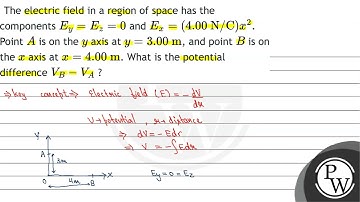 The electric field in a region of space has the
components E_y = E_z = 0 and E_x = (4.00 N/C)x².
Point A is on the y axis at y = 3.00 m, and point B is on
the x axis at x = 4.00 m. What is the potential
difference V_B − V_A ?
⇒ Key concept ⇒ Electric field (E) = −dV/dr
V → potential , r → distance
⇒ dV = − Edr
⇒ V = −∫Edr
Y
A
3m
O
4m
B
X
E_y = 0 = E_z
P
W